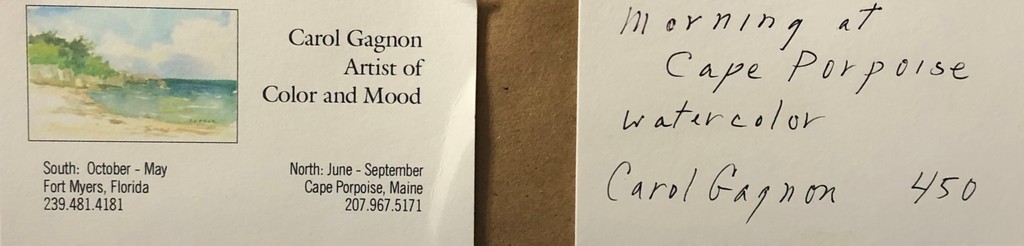 Carol Gagnon
Artist of
Color and Mood
South: October - May
Fort Myers, Florida
239.481.4181
North: June - September
Cape Porpoise, Maine
207.967.5171
Morning at
Cape Porpoise
watercolor
Carol Gagnon 450